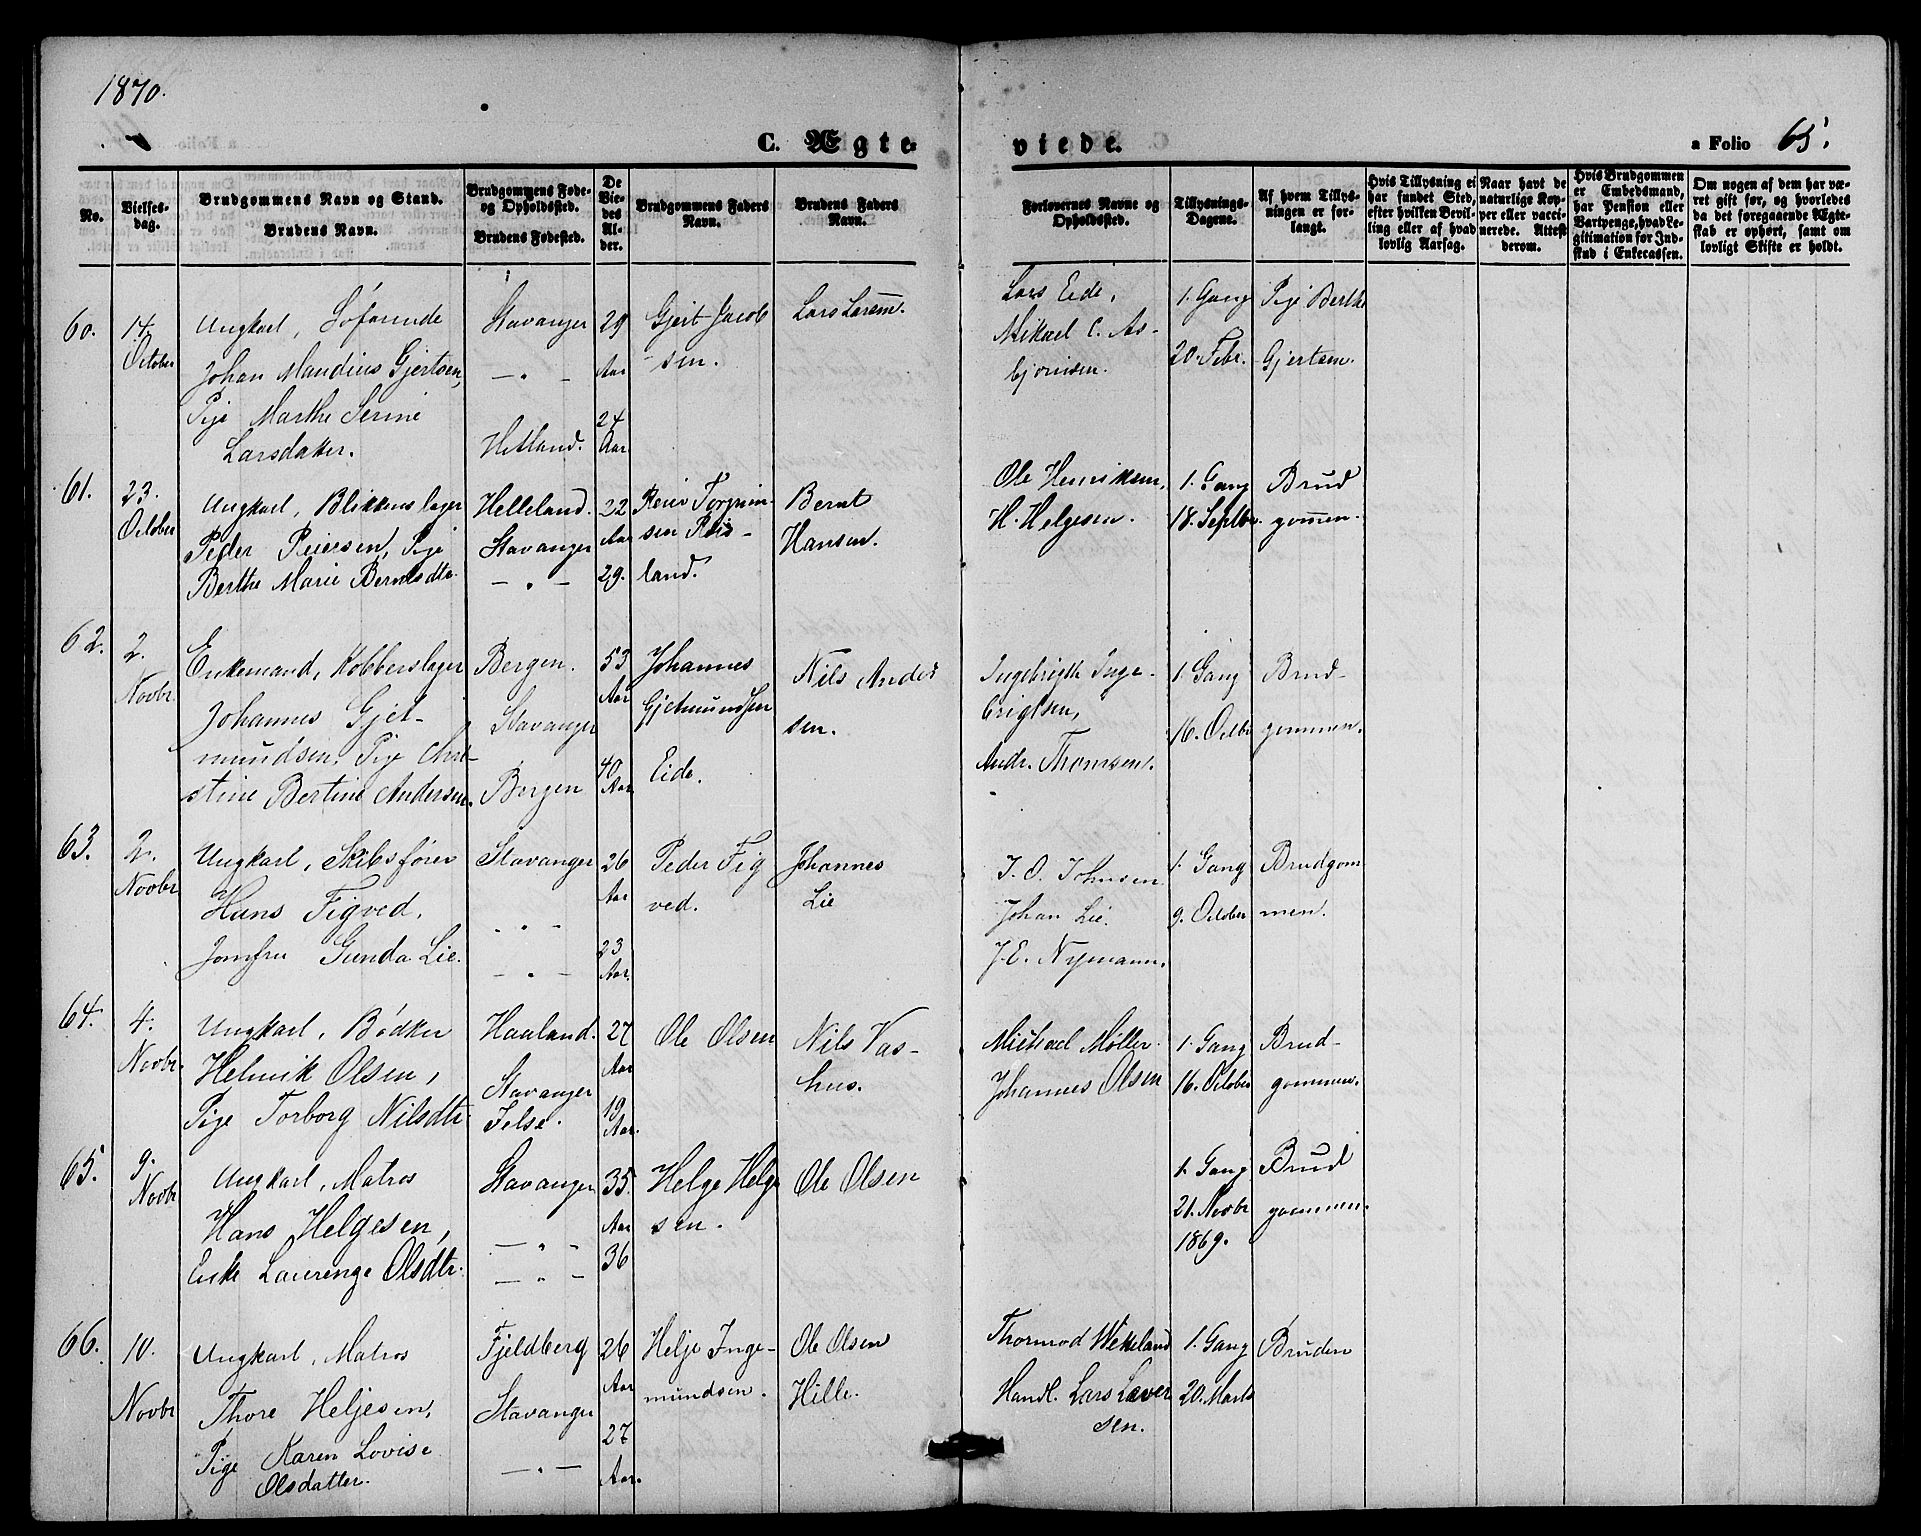 1870.
C. Ægte-
viede.
a Folio 65.
No.
Vielses-
dag.
Brudgommens Navn og Stand.
Brudens Navn.
Brudgommens Føde-
og Opholdssted.
Brudens Fødested.
De
Vie-
des
Al-
der.
Brudgommens Faders
Navn.
Brudens Faders
Navn.
Forlovernes Navne og
Opholdssted.
Tillysnings-
Dagene.
Af hvem Tillys-
ningen er for-
langt.
Hvis Tillysning ei
har fundet Sted,
efter hvilken Bevil-
ling eller af hvad
lovlig Aarsag.
Naar havt de
naturlige Kop-
per eller vacci-
nerede. Attest
derom.
Hvis Brudgommen
er Embedsmand,
har Pension eller
Vartpenge, hvad Le-
gitimation for Ind-
skud i Enkecassen.
Om nogen af dem har væ-
ret gift før, og hvorledes
da det foregaaende Ægte-
skab er ophørt, samt om
lovligt Skifte er holdt.
60.
14.
October
Ungkarl, Söfarende
Johan Maudius Gjertsen,
Pige Marthe Serine
Larsdatter.
Stavanger
— „ —
Hetland.
29
Aar
24
Aar
Gjert Jacob
sen.
Lars Larsen.
Lars Eide,
Mikael C. As-
bjornsen.
1. Gang
20. Febr.
Pige Berthe
Gjertsen.
61.
23.
October
Ungkarl, Blikkenslager
Peder Reiersen, Pige
Berthe Marie Berntsdtr.
Helleland.
Stavanger
— „ —
22
Aar
29.
Reier Torgrim-
sen Reis-
land.
Bernt
Hansen.
Ole Henriksen,
H. Helgesen.
1. Gang
18. Septbr.
Brud
gommen.
62.
2.
Novbr.
Enkemand, Kobberslager
Johannes Gjet-
mundsen, Pige Chri-
stine Bertine Andersen.
Bergen.
Stavanger
Bergen
53
Aar
40
Aar
Johannes
Gjetmundsen
Eide.
Nils Ander
sen.
Ingebrigth Inge-
brigtsen,
Andr. Thomsen.
1. Gang
16. Octbr
Brud-
gommen.
63.
2.
Novbr
Ungkarl, Skibsfører
Hans Figved,
Jomfru Gunda Lie.
Stavanger
„ „ „
— „ —
26
Aar
23
Aar.
Peder Fig
ved.
Johannes
Lie
J. O. Johnsen
Johan Lie.
J. E. Nymann.
1. Gang
9. October
Brudgom
men.
64.
4.
Novbr.
Ungkarl, Bødker
Helmik Olsen,
Pige Torborg Nilsdtr.
Haaland.
Stavanger
Jelse.
27
Aar
19
Aar.
Ole Olsen
Nils Vas-
hus.
Michael Møller
Johannes Olsen
1. Gang
16. October
Brud-
gommen.
65.
9.
Novbr
Ungkarl, Matros
Hans Helgesen,
Enke Laurenze Olsdtr.
Stavanger
— „ —
— „ —
35.
Aar
36
Helge Helge
sen.
Ole Olsen
1. Gang
21. Novbr
1869.
Brud
gommen.
66.
10.
Novbr
Ungkarl, Matros
Thore Heljesen,
Pige Karen Lovise
Olsdatter.
Fjeldberg
Stavanger
— „ —
26
Aar
27
Aar.
Helje Inge-
mundsen.
Ole Olsen
Hille.
Thormod Wekeland
Handl. Lars Laver
sen.
1. Gang
20. Marts
Bruden